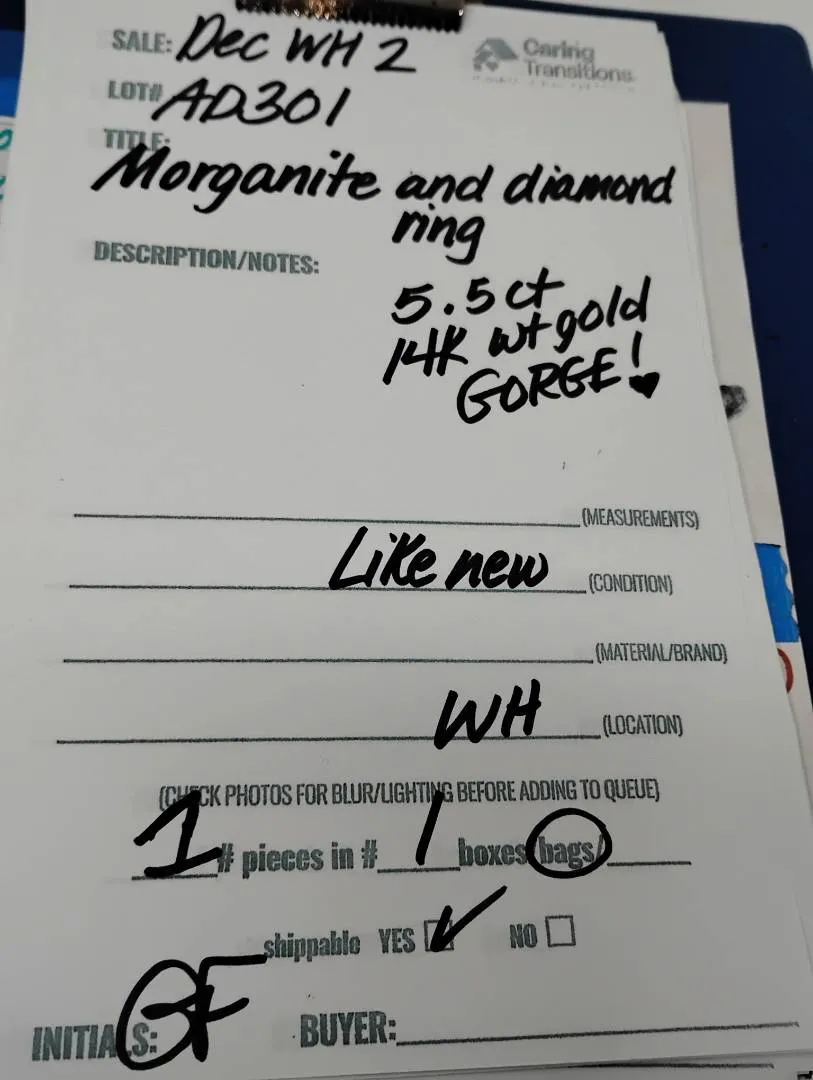 SALE: Dec WH 2
Caring
Transitions
LOT# AD301
TITLE:
Morganite and diamond
ring
DESCRIPTION/NOTES:
5.5ct
14K wt gold
GORGE! ♥
(MEASUREMENTS)
Like new (CONDITION)
(MATERIAL/BRAND)
WH (LOCATION)
(CHECK PHOTOS FOR BLUR/LIGHTING BEFORE ADDING TO QUEUE)
1 # pieces in # 1 boxes/bags/
shippable YES ✓ NO
INITIALS: GF BUYER: